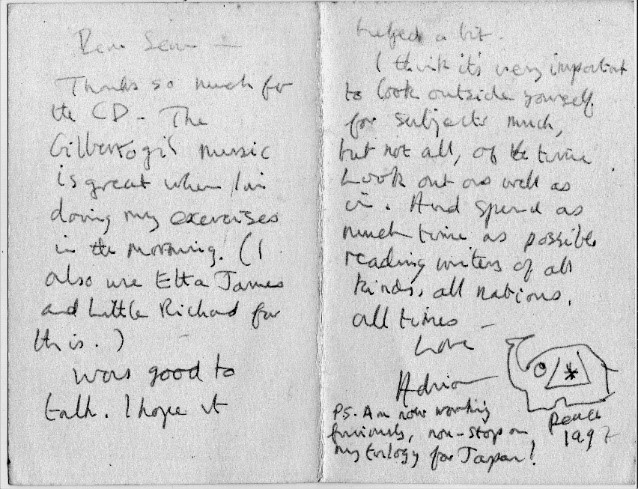 Dear Sean —
Thanks so much for
the CD – The
music
is great when I'm
doing my exercises
in the morning. (I
also use Etta James
and Little Richard for
this.)
Was good to
talk. I hope it
helped a bit.
I think it's very important
to look outside yourself
for subjects much,
but not all, of the time.
Look out as well as
in. And spend as
much time as possible
reading writers of all
kinds, all nations,
all times –
Love
Adrian
PS. Am now working
furiously, non-stop on
my trilogy for Japan!
Peace
1997